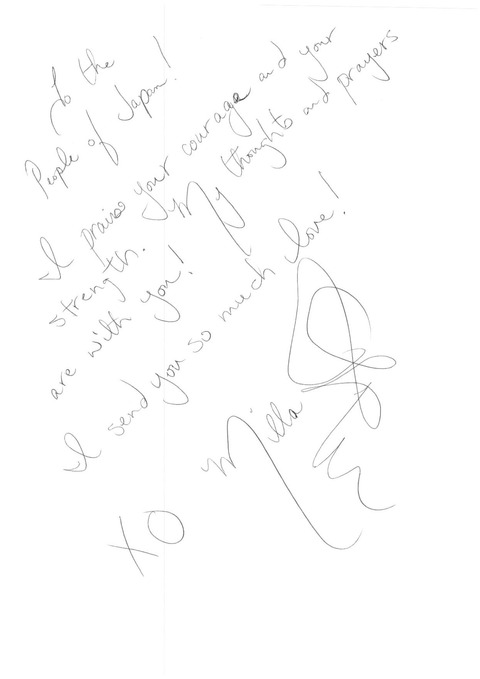 To the
People of Japan!
I praise your courage and your
strength. My thoughts and prayers
are with you!
I send you so much love!
XO Milla